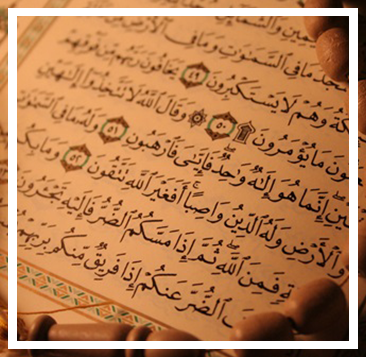 وَٱلشَّمَآئِلِ
يَسْجُدُ مَا فِى ٱلسَّمَٰوَٰتِ وَمَا فِى ٱلْأَرْضِ
وَهُمْ لَا يَسْتَكْبِرُونَ ٤٩ يَخَافُونَ رَبَّهُم مِّن فَوْقِهِمْ
مَا يُؤْمَرُونَ ۩ ٥٠ ۞ وَقَالَ ٱللَّهُ لَا تَتَّخِذُوٓا۟ إِلَٰهَيْنِ
إِنَّمَا هُوَ إِلَٰهٌ وَٰحِدٌ فَإِيَّٰىَ فَٱرْهَبُونِ ٥١ وَلَهُۥ مَا فِى ٱلسَّمَٰوَٰتِ
وَٱلْأَرْضِ وَلَهُ ٱلدِّينُ وَاصِبًا أَفَغَيْرَ ٱللَّهِ تَتَّقُونَ ٥٢ وَمَا بِكُم
فَمِنَ ٱللَّهِ ثُمَّ إِذَا مَسَّكُمُ ٱلضُّرُّ فَإِلَيْهِ تَجْـَٔرُونَ
ٱلضُّرَّ عَنكُمْ إِذَا فَرِيقٌ مِّنكُم بِرَبِّهِمْ